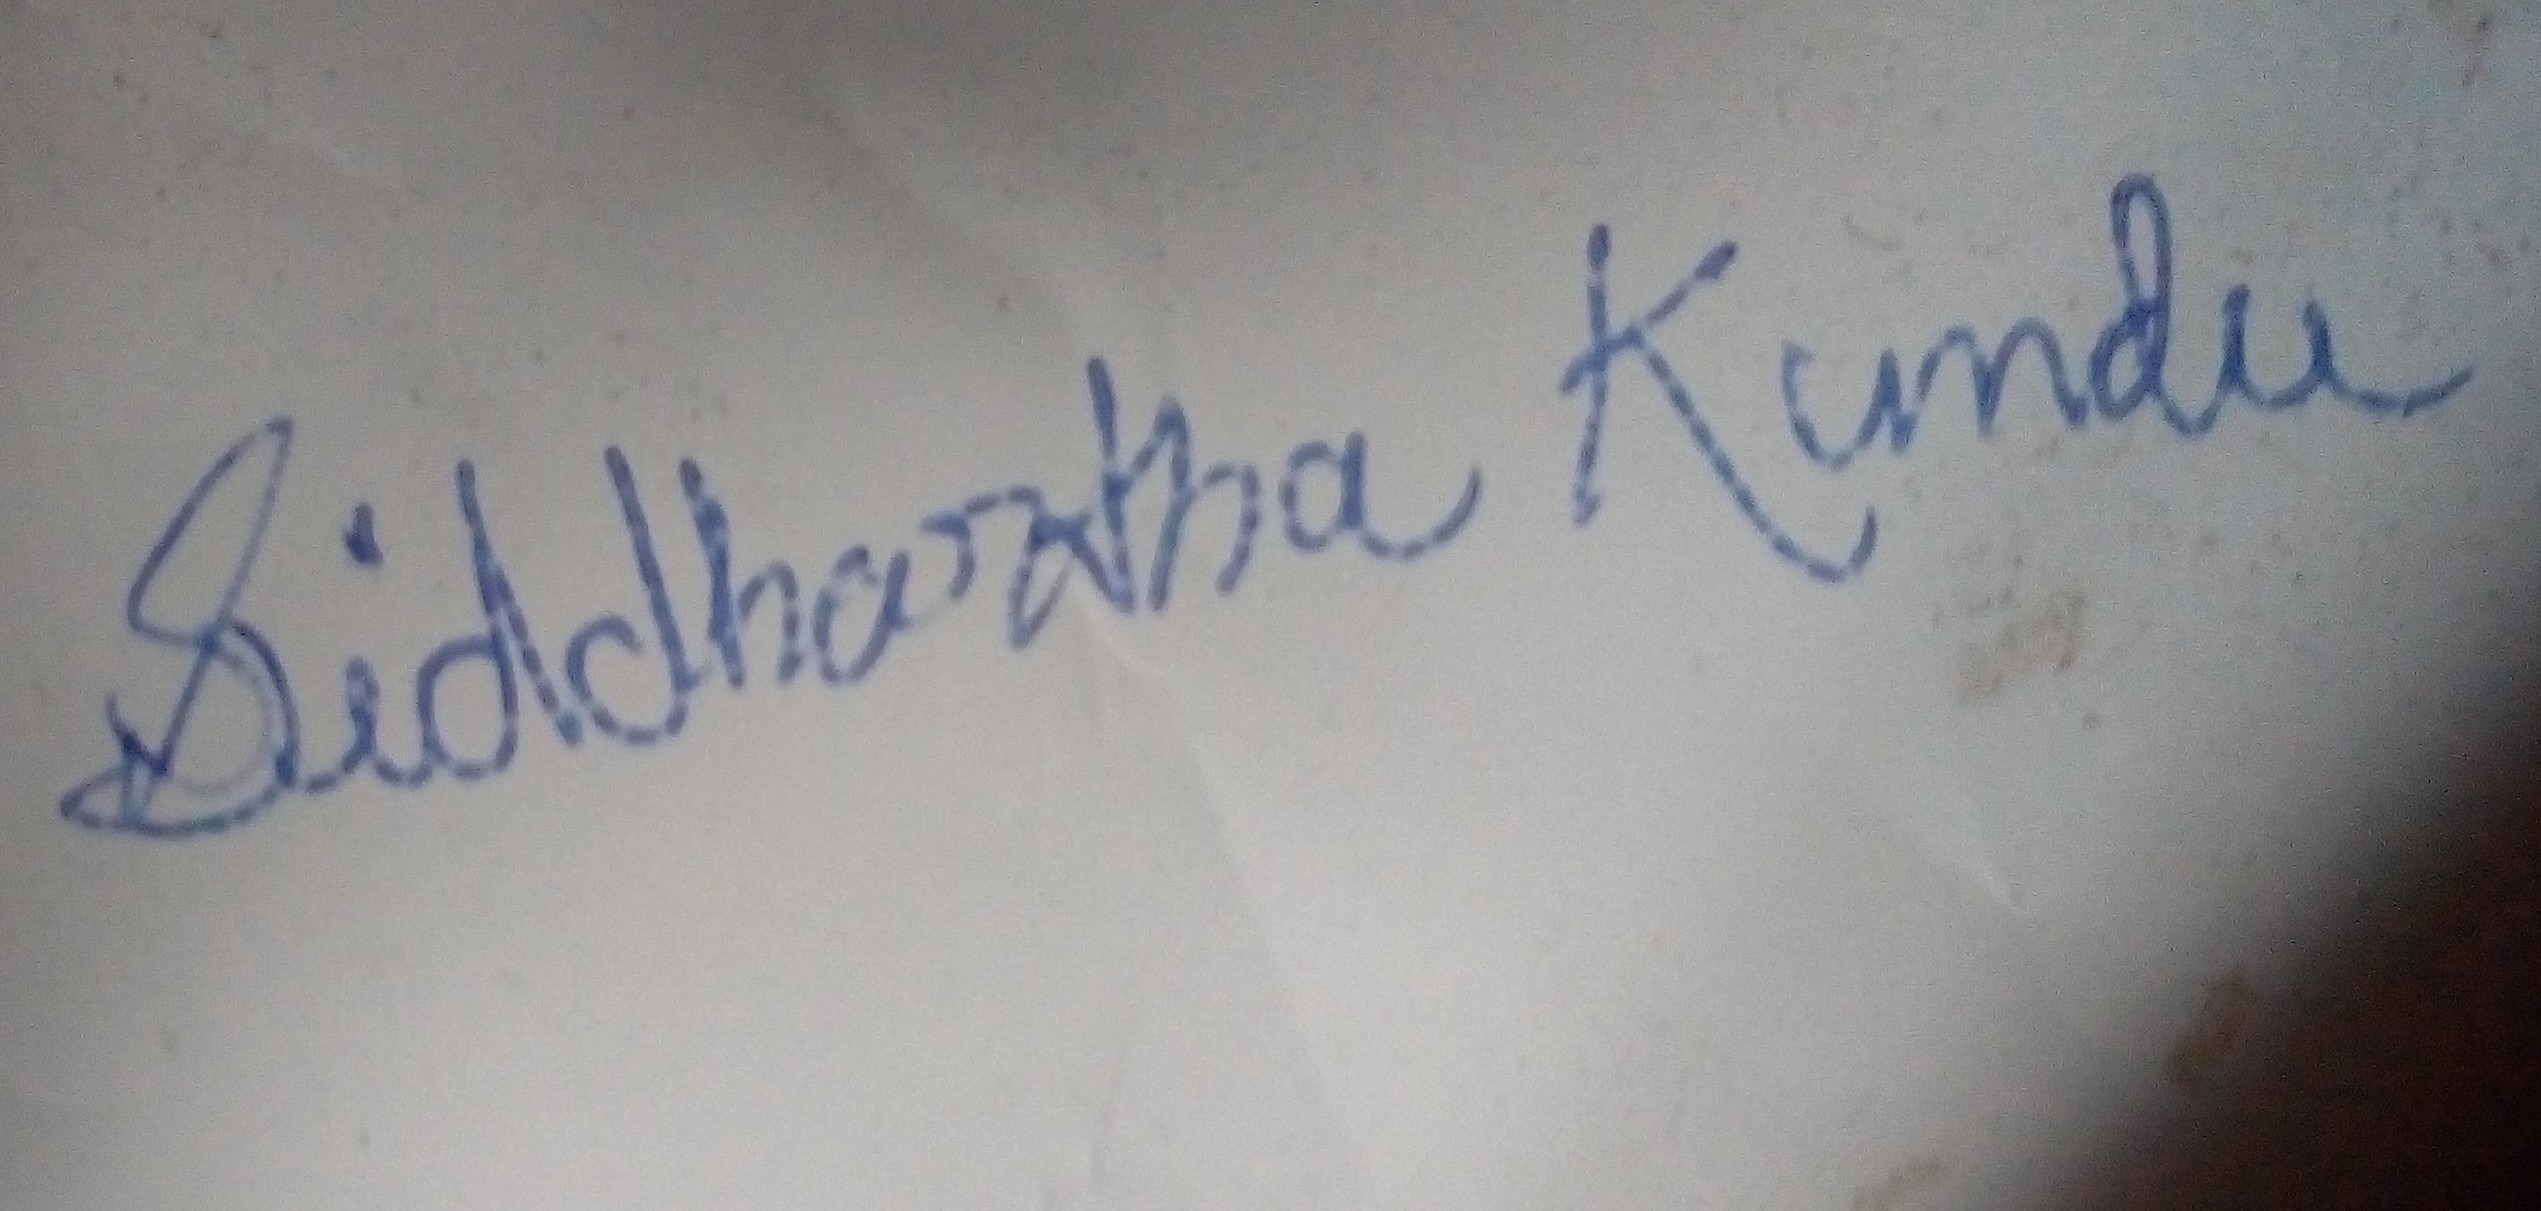 Siddhartha Kundu